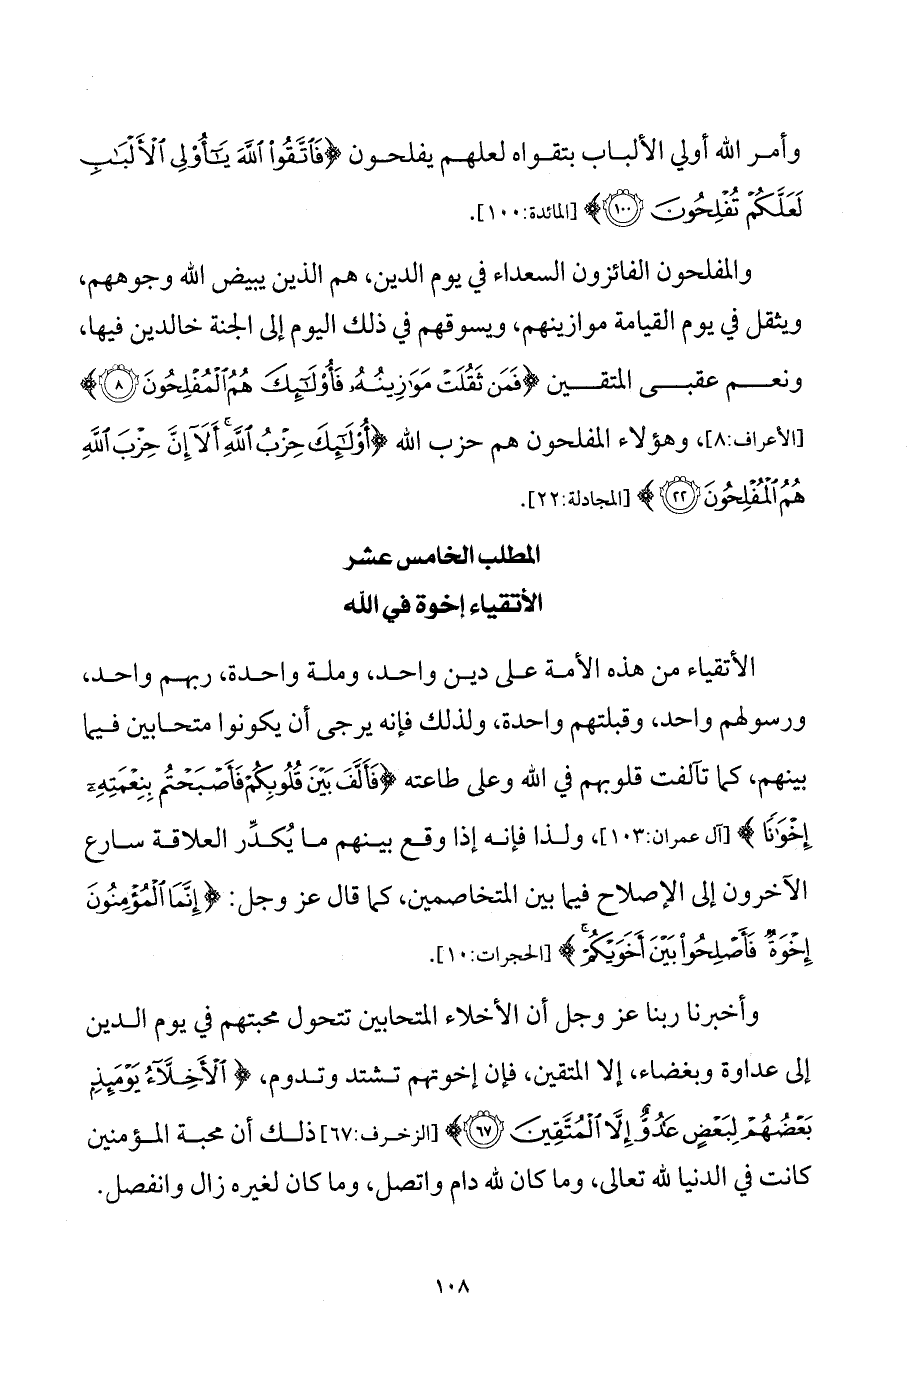 وأمر الله أولي الألباب بتقواه لعلهم يفلحون ﴿فَٱتَّقُوا۟ ٱللَّهَ يَـٰٓأُو۟لِى ٱلْأَلْبَـٰبِ
لَعَلَّكُمْ تُفْلِحُونَ ١٠٠﴾ [المائدة:١٠٠].
والمفلحون الفائزون السعداء في يوم الدين، هم الذين يبيض الله وجوههم،
ويثقل في يوم القيامة موازينهم، ويسوقهم في ذلك اليوم إلى الجنة خالدين فيها،
ونعم عقبى المتقين ﴿فَمَن ثَقُلَتْ مَوَٰزِينُهُۥ فَأُو۟لَـٰٓئِكَ هُمُ ٱلْمُفْلِحُونَ ٨﴾
[الأعراف:٨]، وهؤلاء المفلحون هم حزب الله ﴿أُو۟لَـٰٓئِكَ حِزْبُ ٱللَّهِ ۚ أَلَآ إِنَّ حِزْبَ ٱللَّهِ
هُمُ ٱلْمُفْلِحُونَ ٢٢﴾ [المجادلة:٢٢].
المطلب الخامس عشر
الأتقياء إخوة في الله
الأتقياء من هذه الأمة على دين واحد، وملة واحدة، ربهم واحد،
ورسولهم واحد، وقبلتهم واحدة، ولذلك فإنه يرجى أن يكونوا متحابين فيما
بينهم، كما تآلفت قلوبهم في الله وعلى طاعته ﴿فَأَلَّفَ بَيْنَ قُلُوبِكُمْ فَأَصْبَحْتُم بِنِعْمَتِهِۦٓ
إِخْوَٰنًا﴾ [آل عمران:١٠٣]، ولذا فإنه إذا وقع بينهم ما يُكدِّر العلاقة سارع
الآخرون إلى الإصلاح فيما بين المتخاصمين، كما قال عز وجل: ﴿إِنَّمَا ٱلْمُؤْمِنُونَ
إِخْوَةٌ فَأَصْلِحُوا۟ بَيْنَ أَخَوَيْكُمْ ۚ﴾ [الحجرات:١٠].
وأخبرنا ربنا عز وجل أن الأخلاء المتحابين تتحول محبتهم في يوم الدين
إلى عداوة وبغضاء، إلا المتقين، فإن إخوتهم تشتد وتدوم، ﴿ٱلْأَخِلَّآءُ يَوْمَئِذٍۭ
بَعْضُهُمْ لِبَعْضٍ عَدُوٌّ إِلَّا ٱلْمُتَّقِينَ ٦٧﴾ [الزخرف:٦٧] ذلك أن محبة المؤمنين
كانت في الدنيا لله تعالى، وما كان لله دام واتصل، وما كان لغيره زال وانفصل.
١٠٨